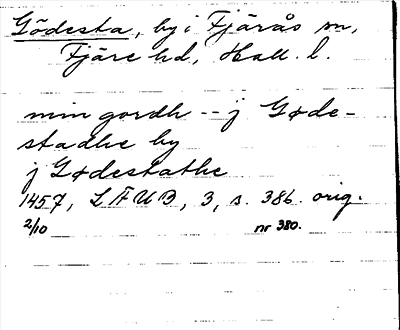 Gödesta, by i Fjärås sn,
Fjäre hd, Hall. l.
min gordh -- j Gøde-
stadhe by
j Gødestathe
1457, LFUB, 3, s. 386. orig.
2/10 nr 380.